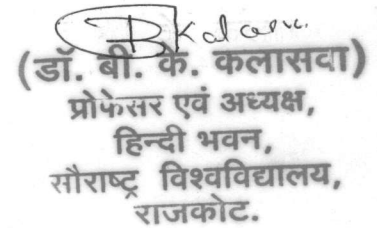 (डॉ. बी. के. कलासवा)
प्रोफेसर एवं अध्यक्ष,
हिन्दी भवन,
सौराष्ट्र विश्वविद्यालय,
राजकोट.